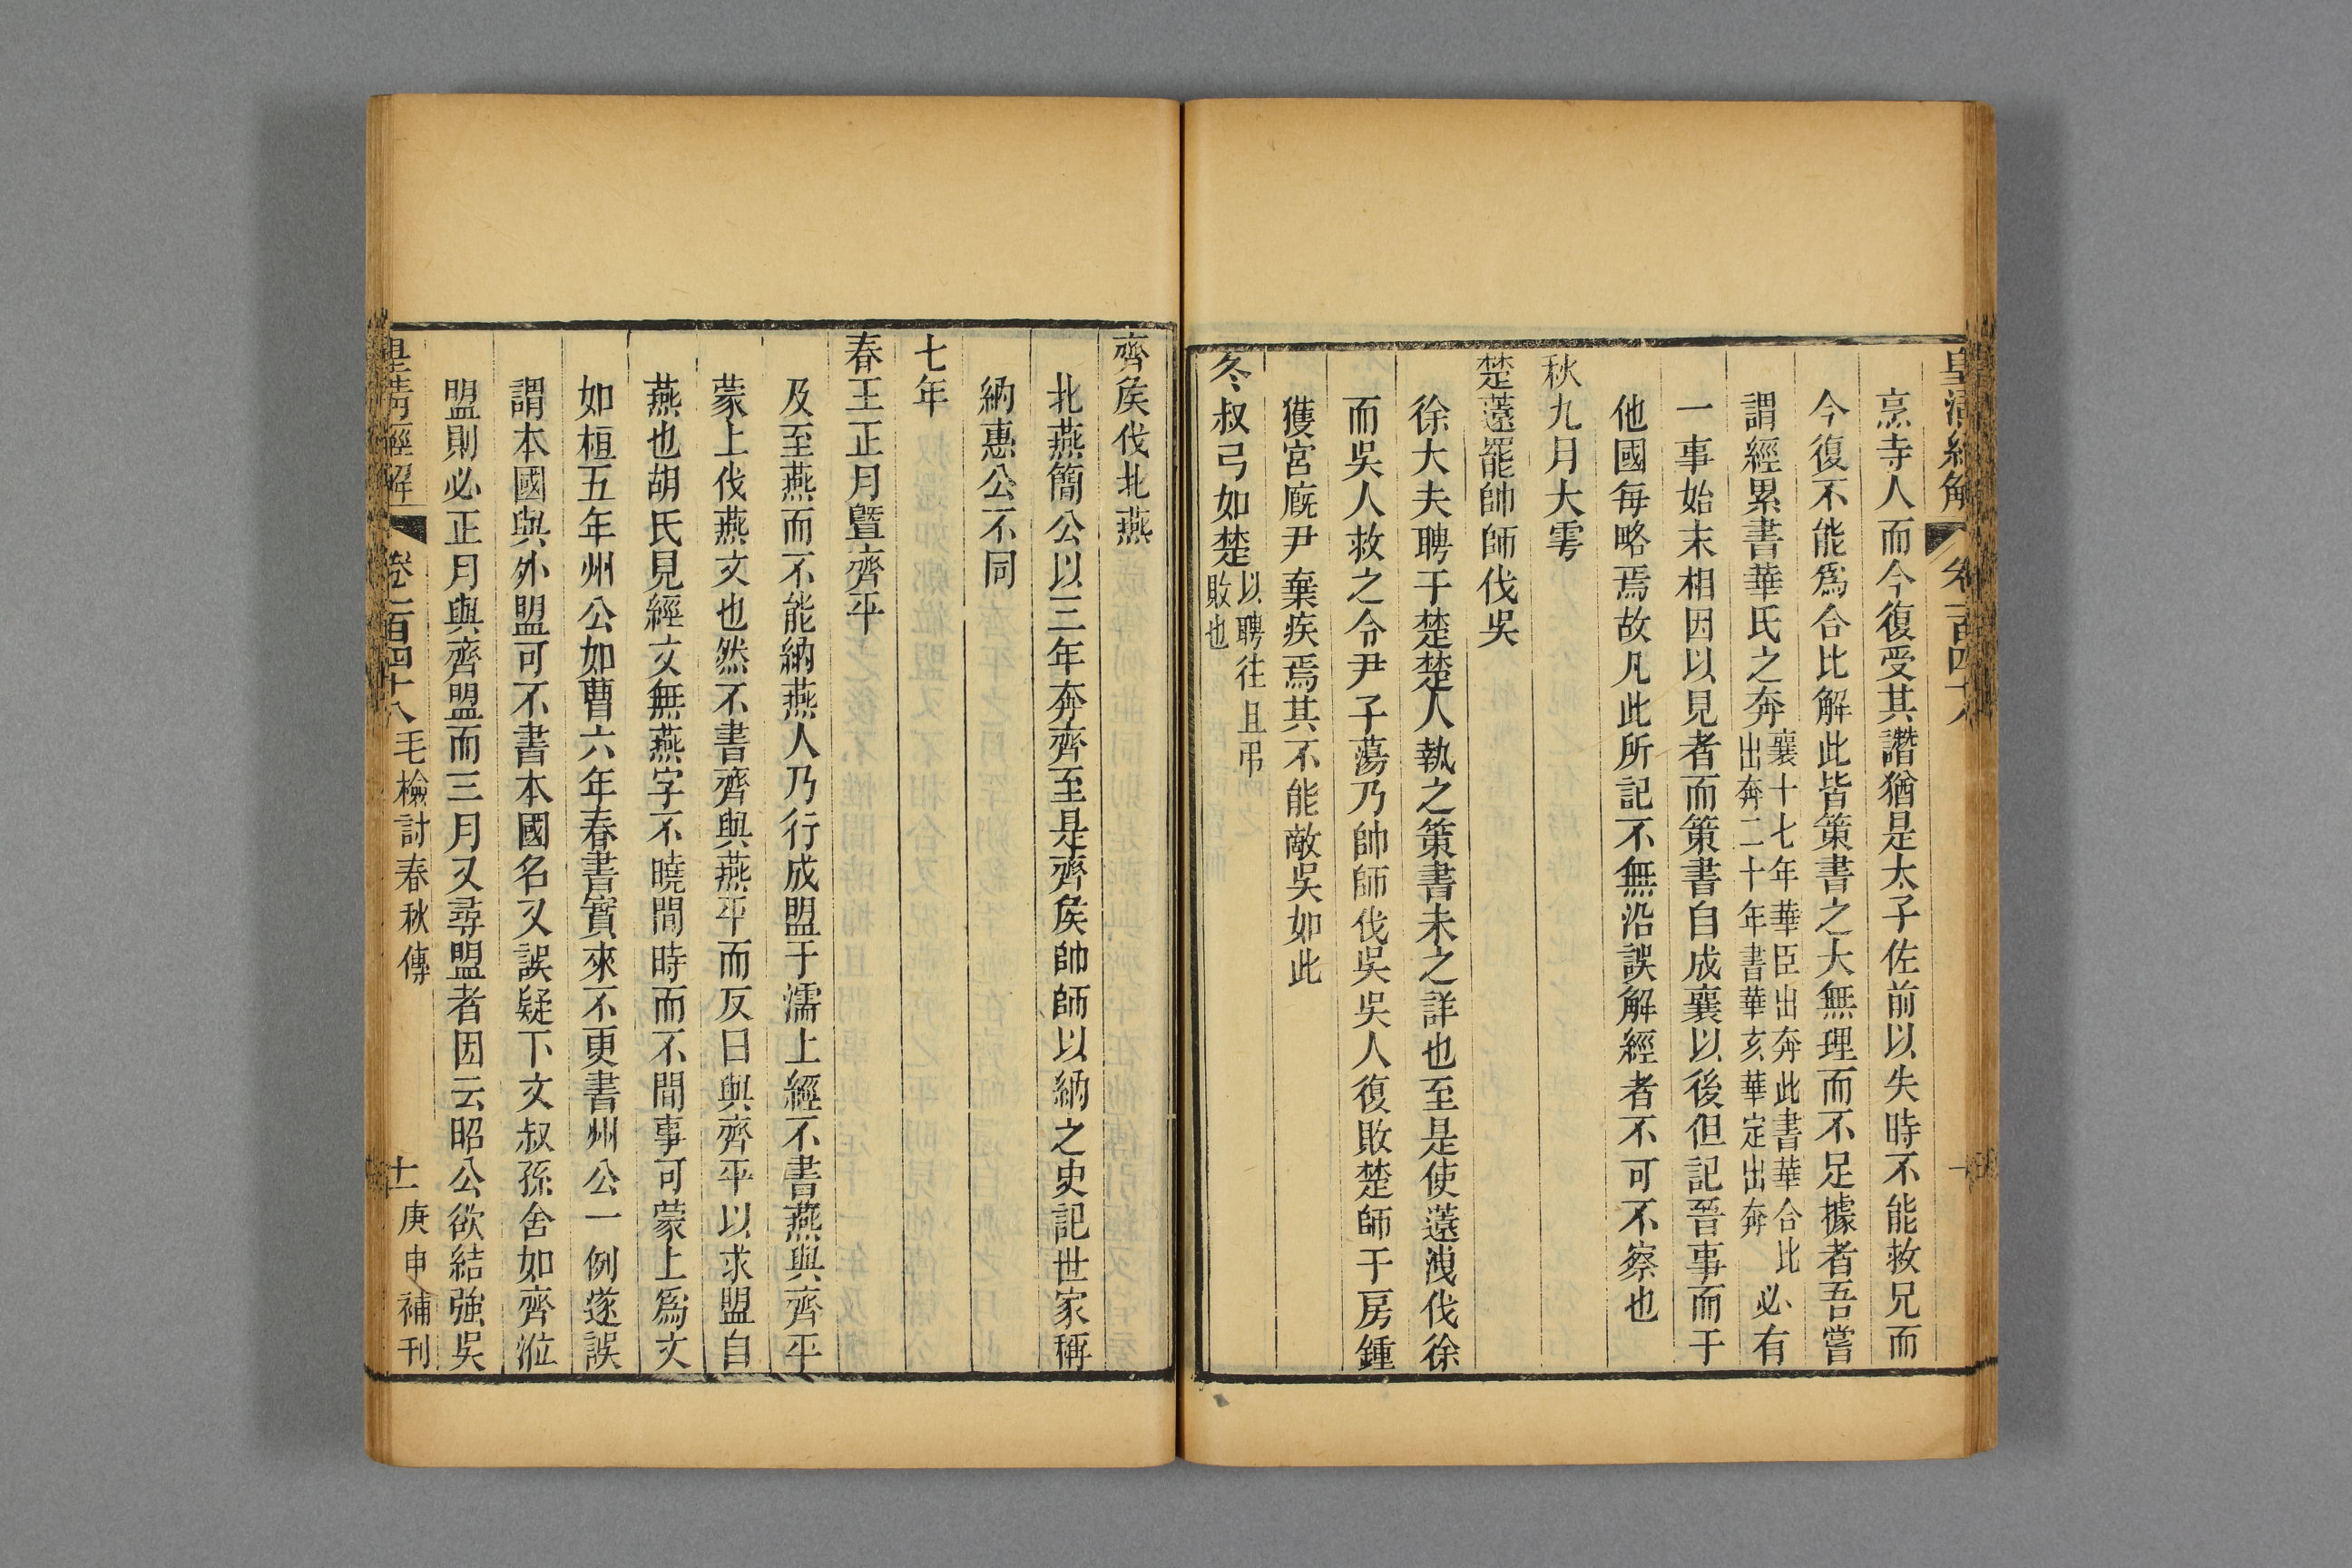 皇清經解 卷一百四十八
烹寺人而今復受其譖猶是太子佐前以失時不能救兄而
今復不能爲合比解此皆策書之大無理而不足據者吾嘗
謂經累書華氏之奔襄十七年華臣出奔此書華合比出奔二十年書華亥華定出奔必有
一事始末相因以見者而策書自成襄以後但記晉事而于
他國每略焉故凡此所記不無沿誤解經者不可不察也
秋九月大雩
楚薳罷帥師伐吳
徐大夫聘于楚楚人執之策書未之詳也至是使薳洩伐徐
而吳人救之令尹子蕩乃帥師伐吳吳人復敗楚師于房鍾
獲宮廐尹棄疾焉其不能敵吳如此
冬叔弓如楚以聘往且弔敗也
齊矦伐北燕
北燕簡公以三年奔齊至是齊矦帥師以納之史記世家稱
納惠公不同
七年
春王正月曁齊平
及至燕而不能納燕人乃行成盟于濡上經不書燕與齊平
蒙上伐燕文也然不書齊與燕平而反曰與齊平以求盟自
燕也胡氏見經文無燕字不曉間時而不間事可蒙上爲文
如桓五年州公如曹六年春書寔來不更書州公一例遂誤
謂本國與外盟可不書本國名又誤疑下文叔孫舍如齊涖
盟則必正月與齊盟而三月又尋盟者因云昭公欲結強吳
皇淸經解 卷一百四十八 毛檢討春秋傳 十一 庚申補刊